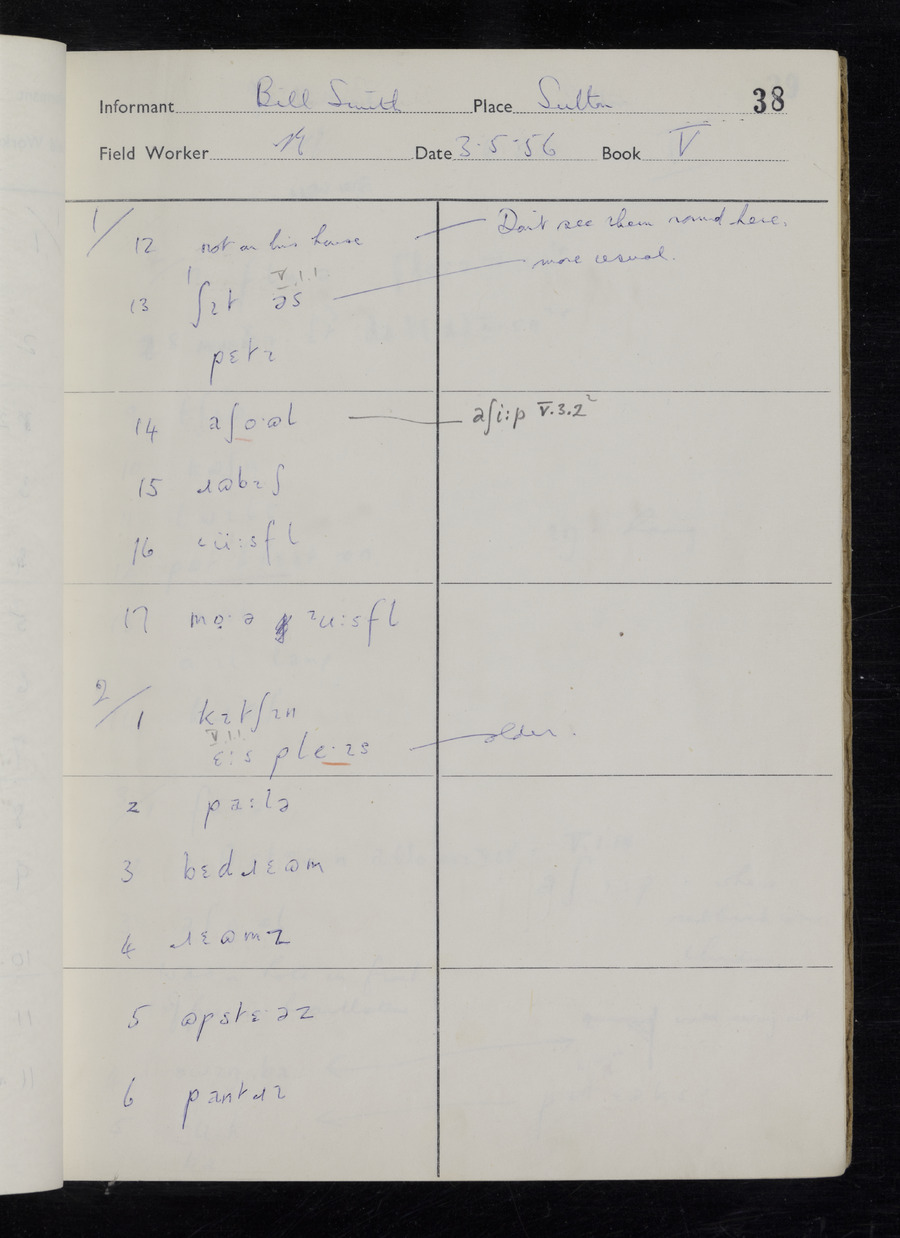 Informant Bill Smith Place Sutton 38
Field Worker N Date 3·5·56 Book V
1/ 12 not on his house Don't see them round here.
13 ʃɪt əs V.1.1 more usual.
pɛtɪ
14 əʃo·ɷl əʃi:p V.3.2²
15 ɹɷbɪʃ
16 ü:sfl
17 mọ·ə ɪu:sfl
2/ 1 kɪtʃɪn
V.1.1
ɛ:s ple·ɪs older.
2 pa:lə
3 bɛdɹɛɷm
4 ɹɛɷmz
5 ɷpstɛ·əz
6 pantɹɪ